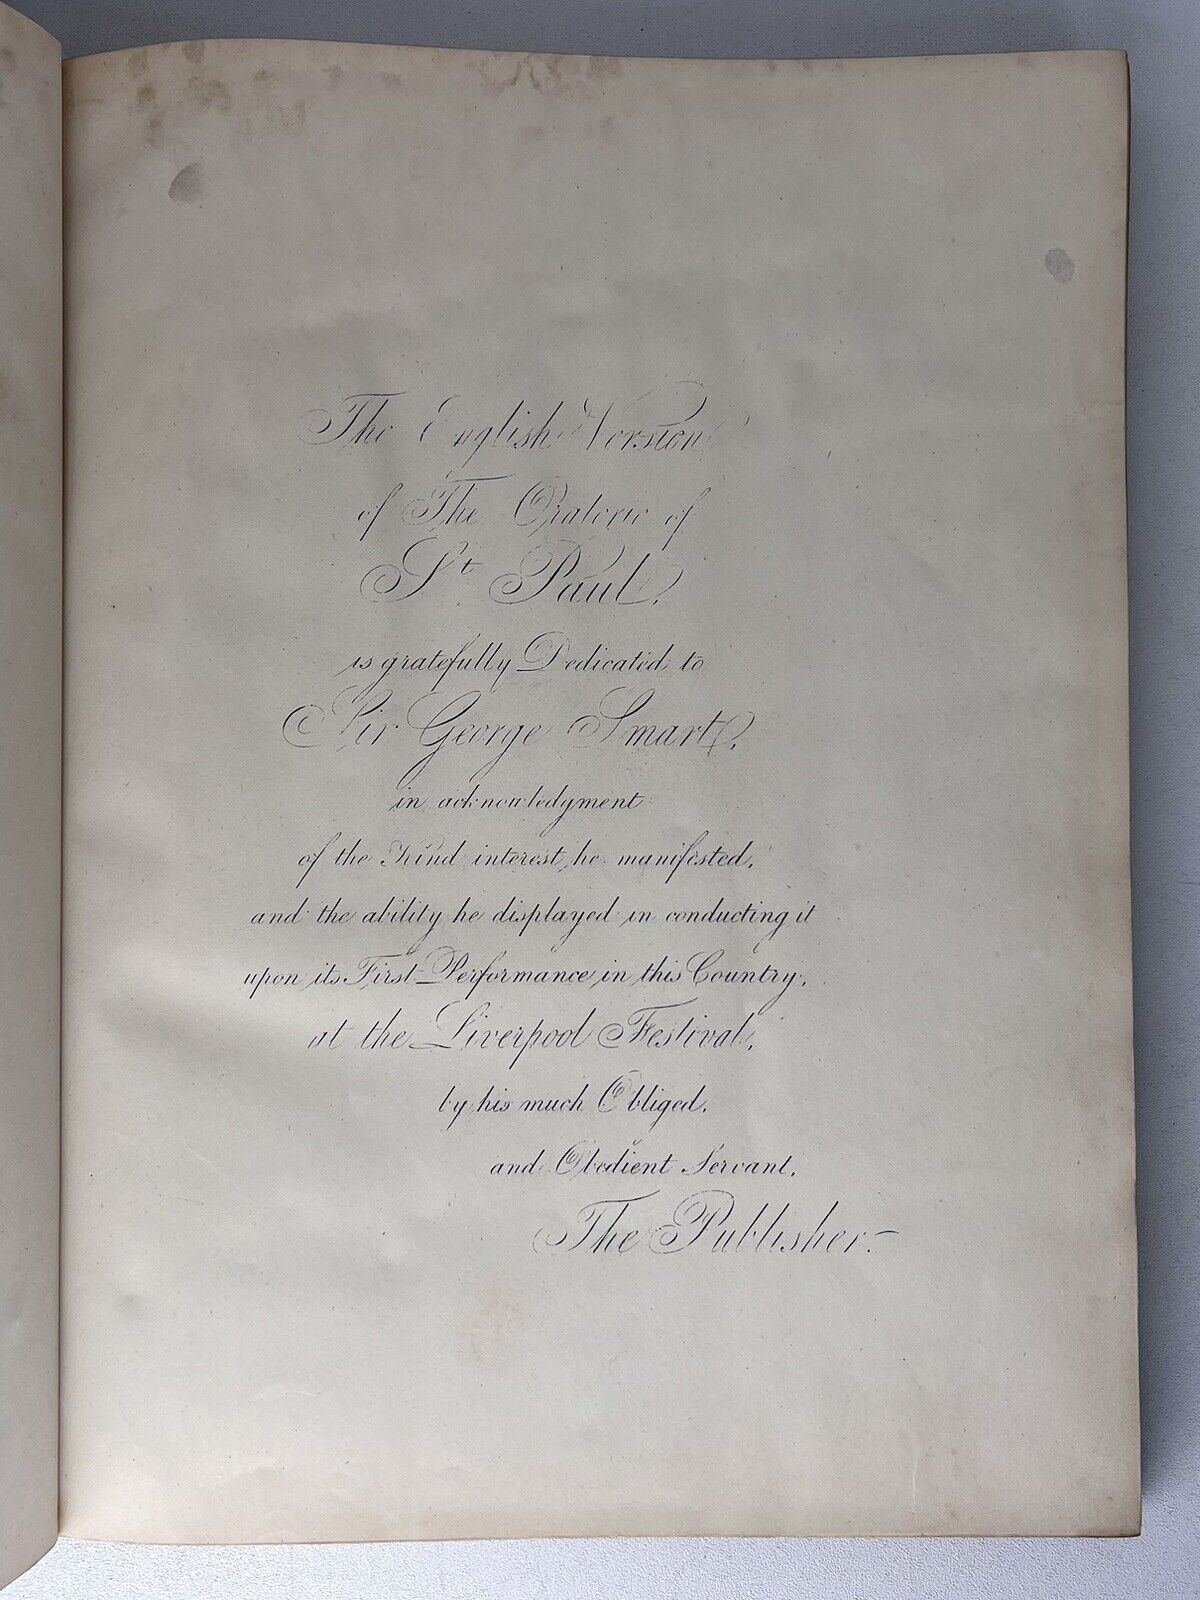 The English Version
of The Oratorio of
St Paul.
is gratefully Dedicated to
Sir George Smart,
in acknowledgment
of the Kind interest he manifested,
and the ability he displayed in conducting it
upon its First Performance in this Country,
at the Liverpool Festival,
by his much Obliged,
and Obedient Servant,
The Publisher.